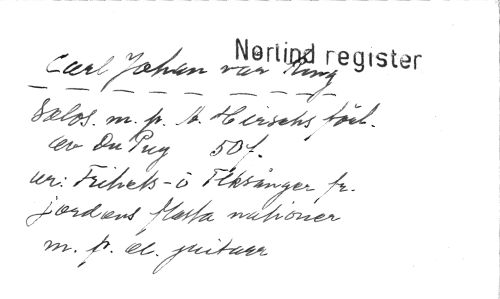 Norlind register
Carl Johan var Ung
Solos. m. p. A. Hirschs förl.
av Du Puy 50 f.
ur: Frihets- o Folksånger fr.
jordens flesta nationer
m. p. el. guitarr